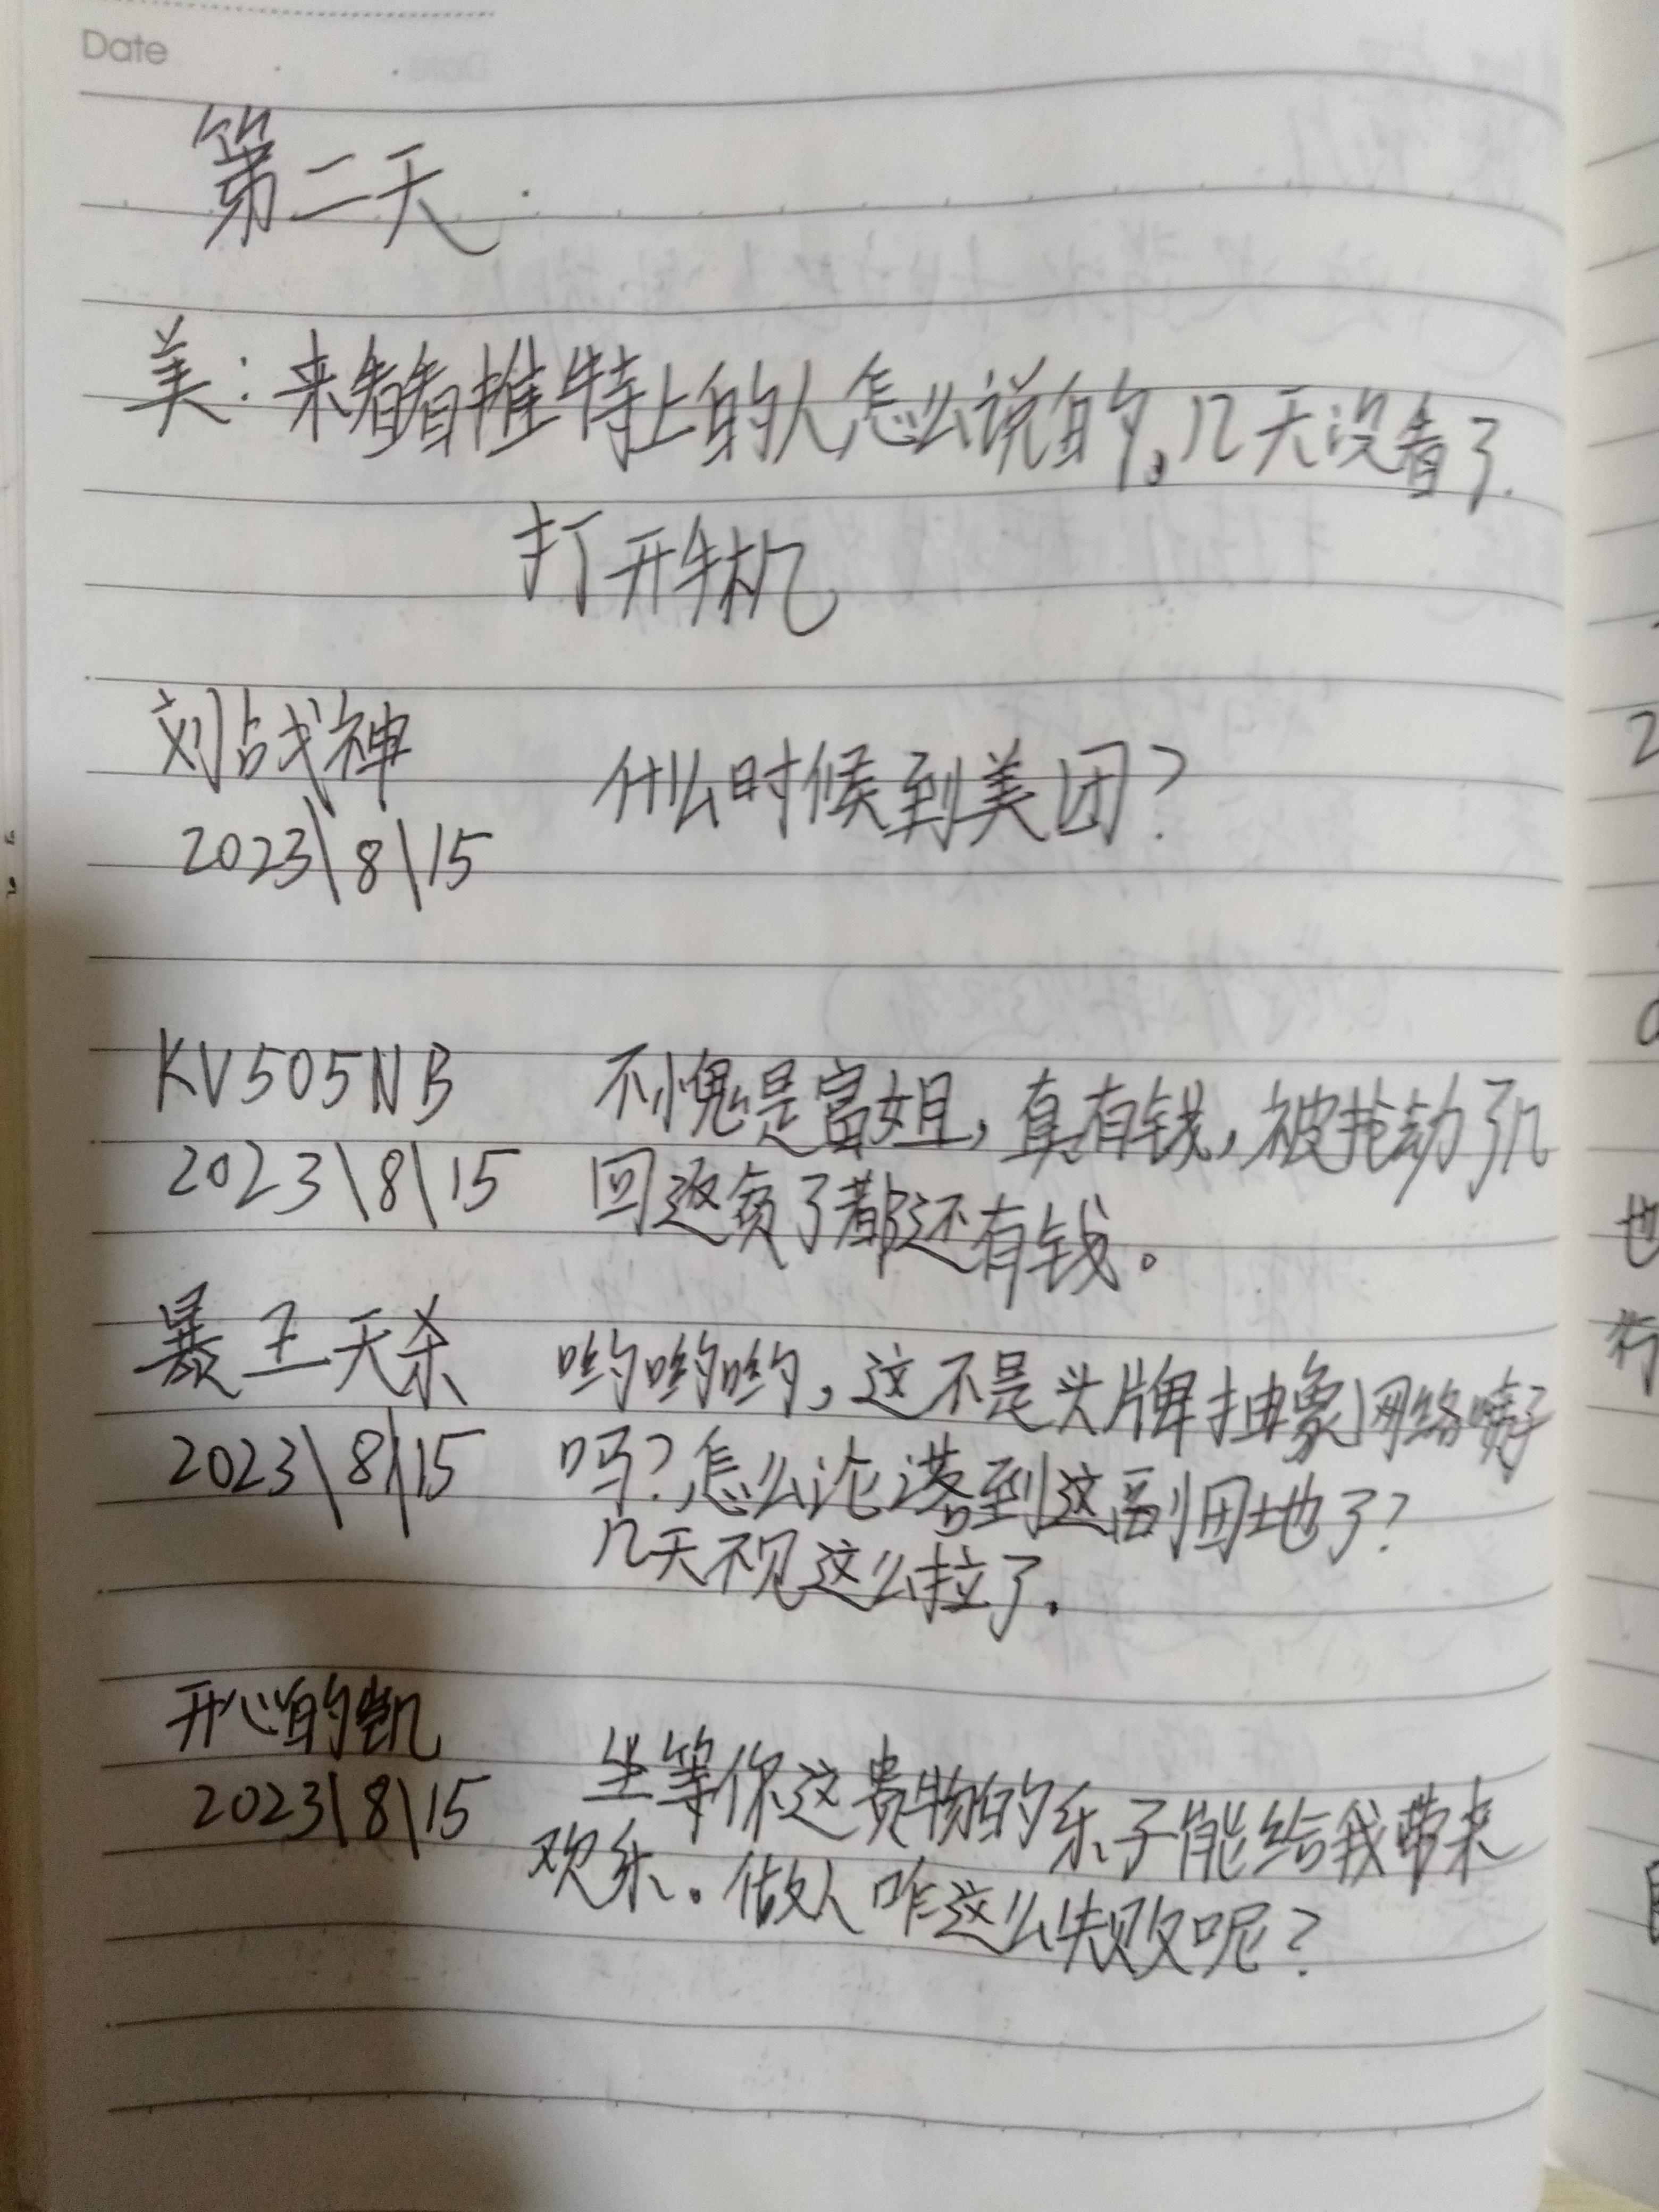 Date
第二天
美:来看看推特上的人怎么说的,几天没看了.
打开手机
刘战神 什么时候到美团?
2023\8\15
KV505NB 不愧是富姐,真有钱,被抢劫了几
2023\8\15 回返贫了都还有钱。
暴王天杀 哟哟哟,这不是头牌抽象网络喷子
2023\8\15 吗?怎么沦落到这副田地了?
几天不见这么拉了.
开心的凯
2023\8\15 坐等你这贵物的乐子能给我带来
欢乐。做人咋这么失败呢?
2
也
行